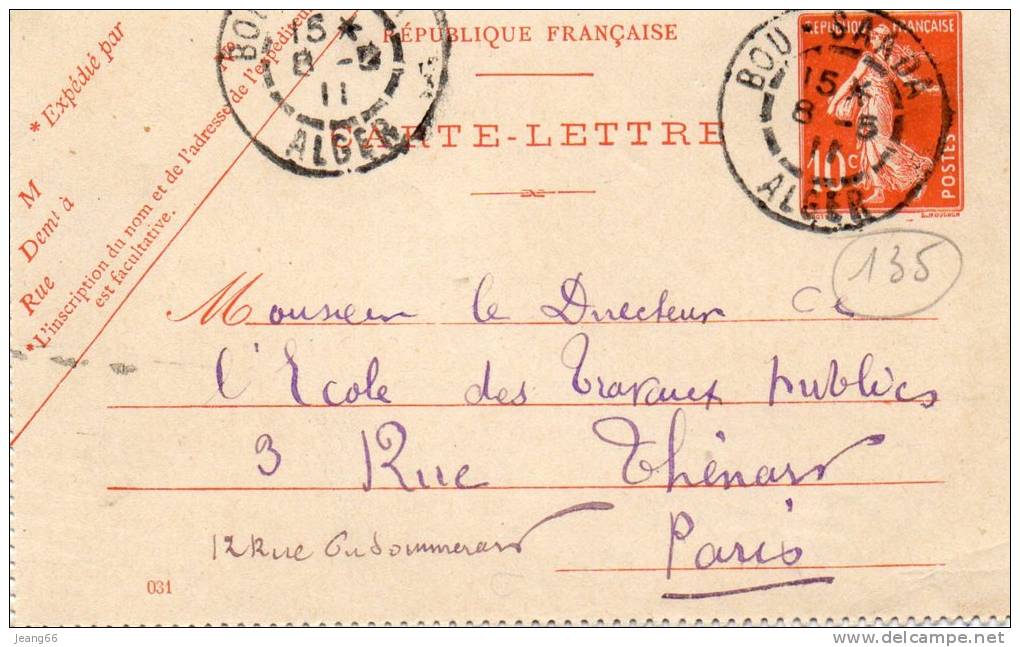 RÉPUBLIQUE FRANÇAISE
CARTE-LETTRE
* Expédié par
M
Demt à
Rue
*L'inscription du nom et de l'adresse de l'expéditeur
est facultative.
BOU
15 *
8 -5
11
ALGER
REPUBLIQUE FRANÇAISE
10 c
POSTES
BOU-SAADA
15 *
8 -5
11
ALGER
135
Monsieur le Directeur de
l'Ecole des Travaux publics
3 Rue Thénard
Paris
12 Rue Du Sommerard
031
jeang66
delcampe.net